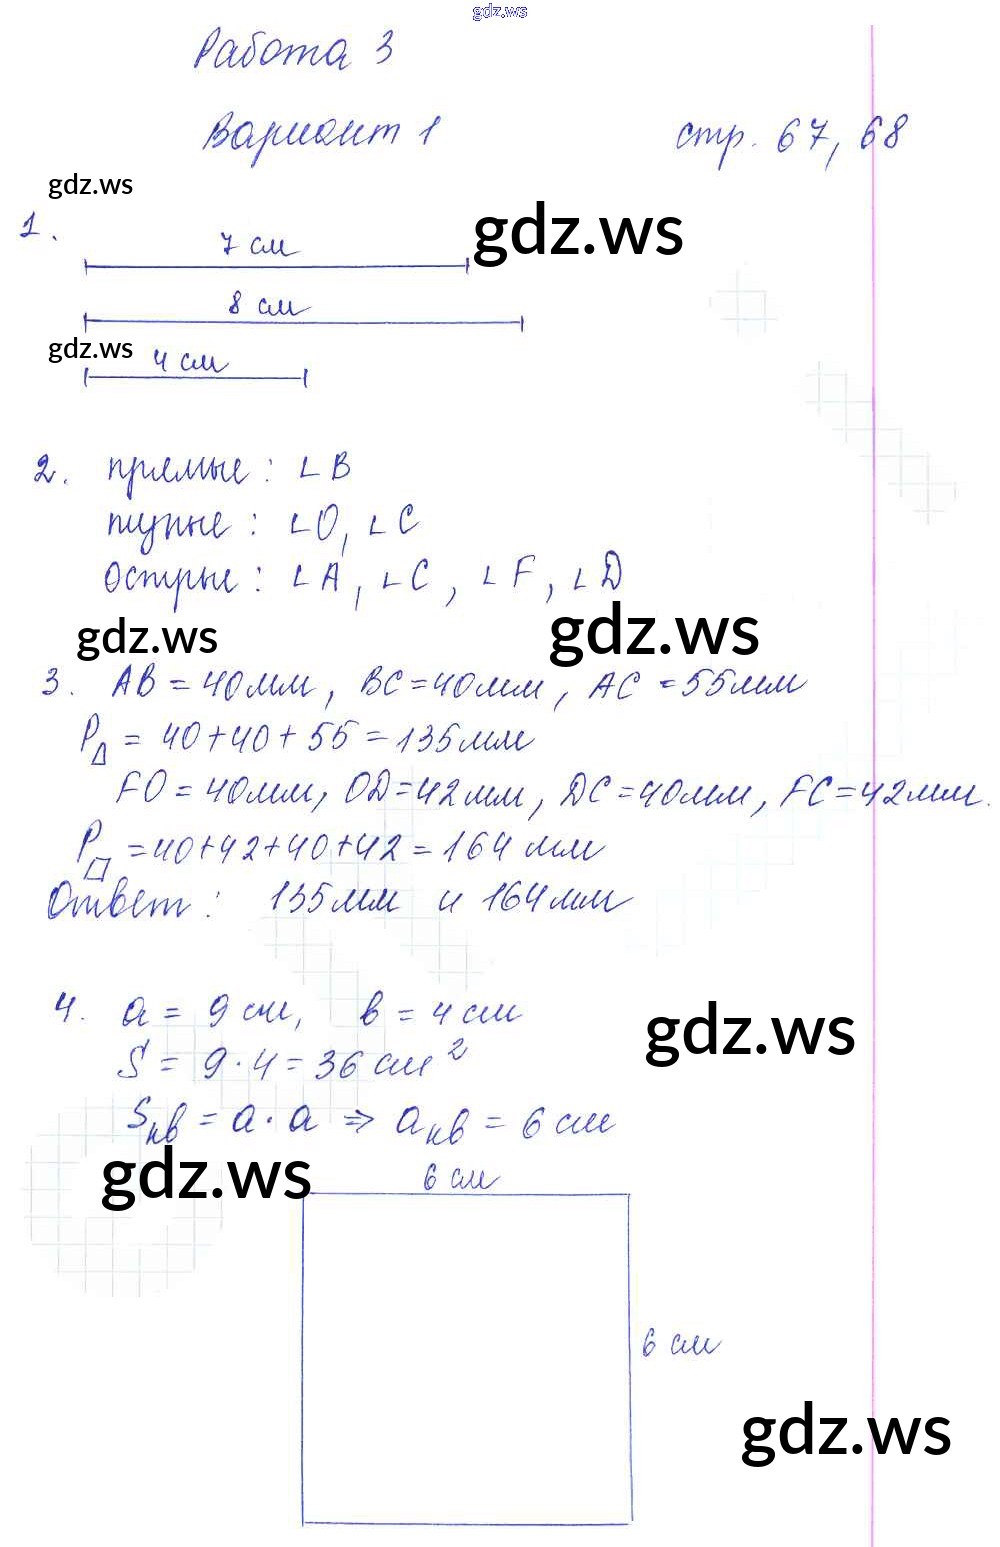 gdz.ws
Работа 3
Вариант 1 стр. 67, 68
gdz.ws
1. 7 см gdz.ws
8 см
gdz.ws 4 см
2. прямые: ∟B
тупые: ∟O, ∟C
острые: ∟A, ∟C, ∟F, ∟D
gdz.ws gdz.ws
3. AB = 40мм, BC = 40мм, AC = 55мм
P△ = 40 + 40 + 55 = 135мм
FO = 40мм, OD = 42мм, DC = 40мм, FC = 42мм.
P▱ = 40 + 42 + 40 + 42 = 164 мм
Ответ: 135мм и 164мм
4. a = 9 см, в = 4 см
gdz.ws
S = 9 · 4 = 36 см²
Sкв = a · a ⇒ aкв = 6 см
gdz.ws 6 см
6 см
gdz.ws